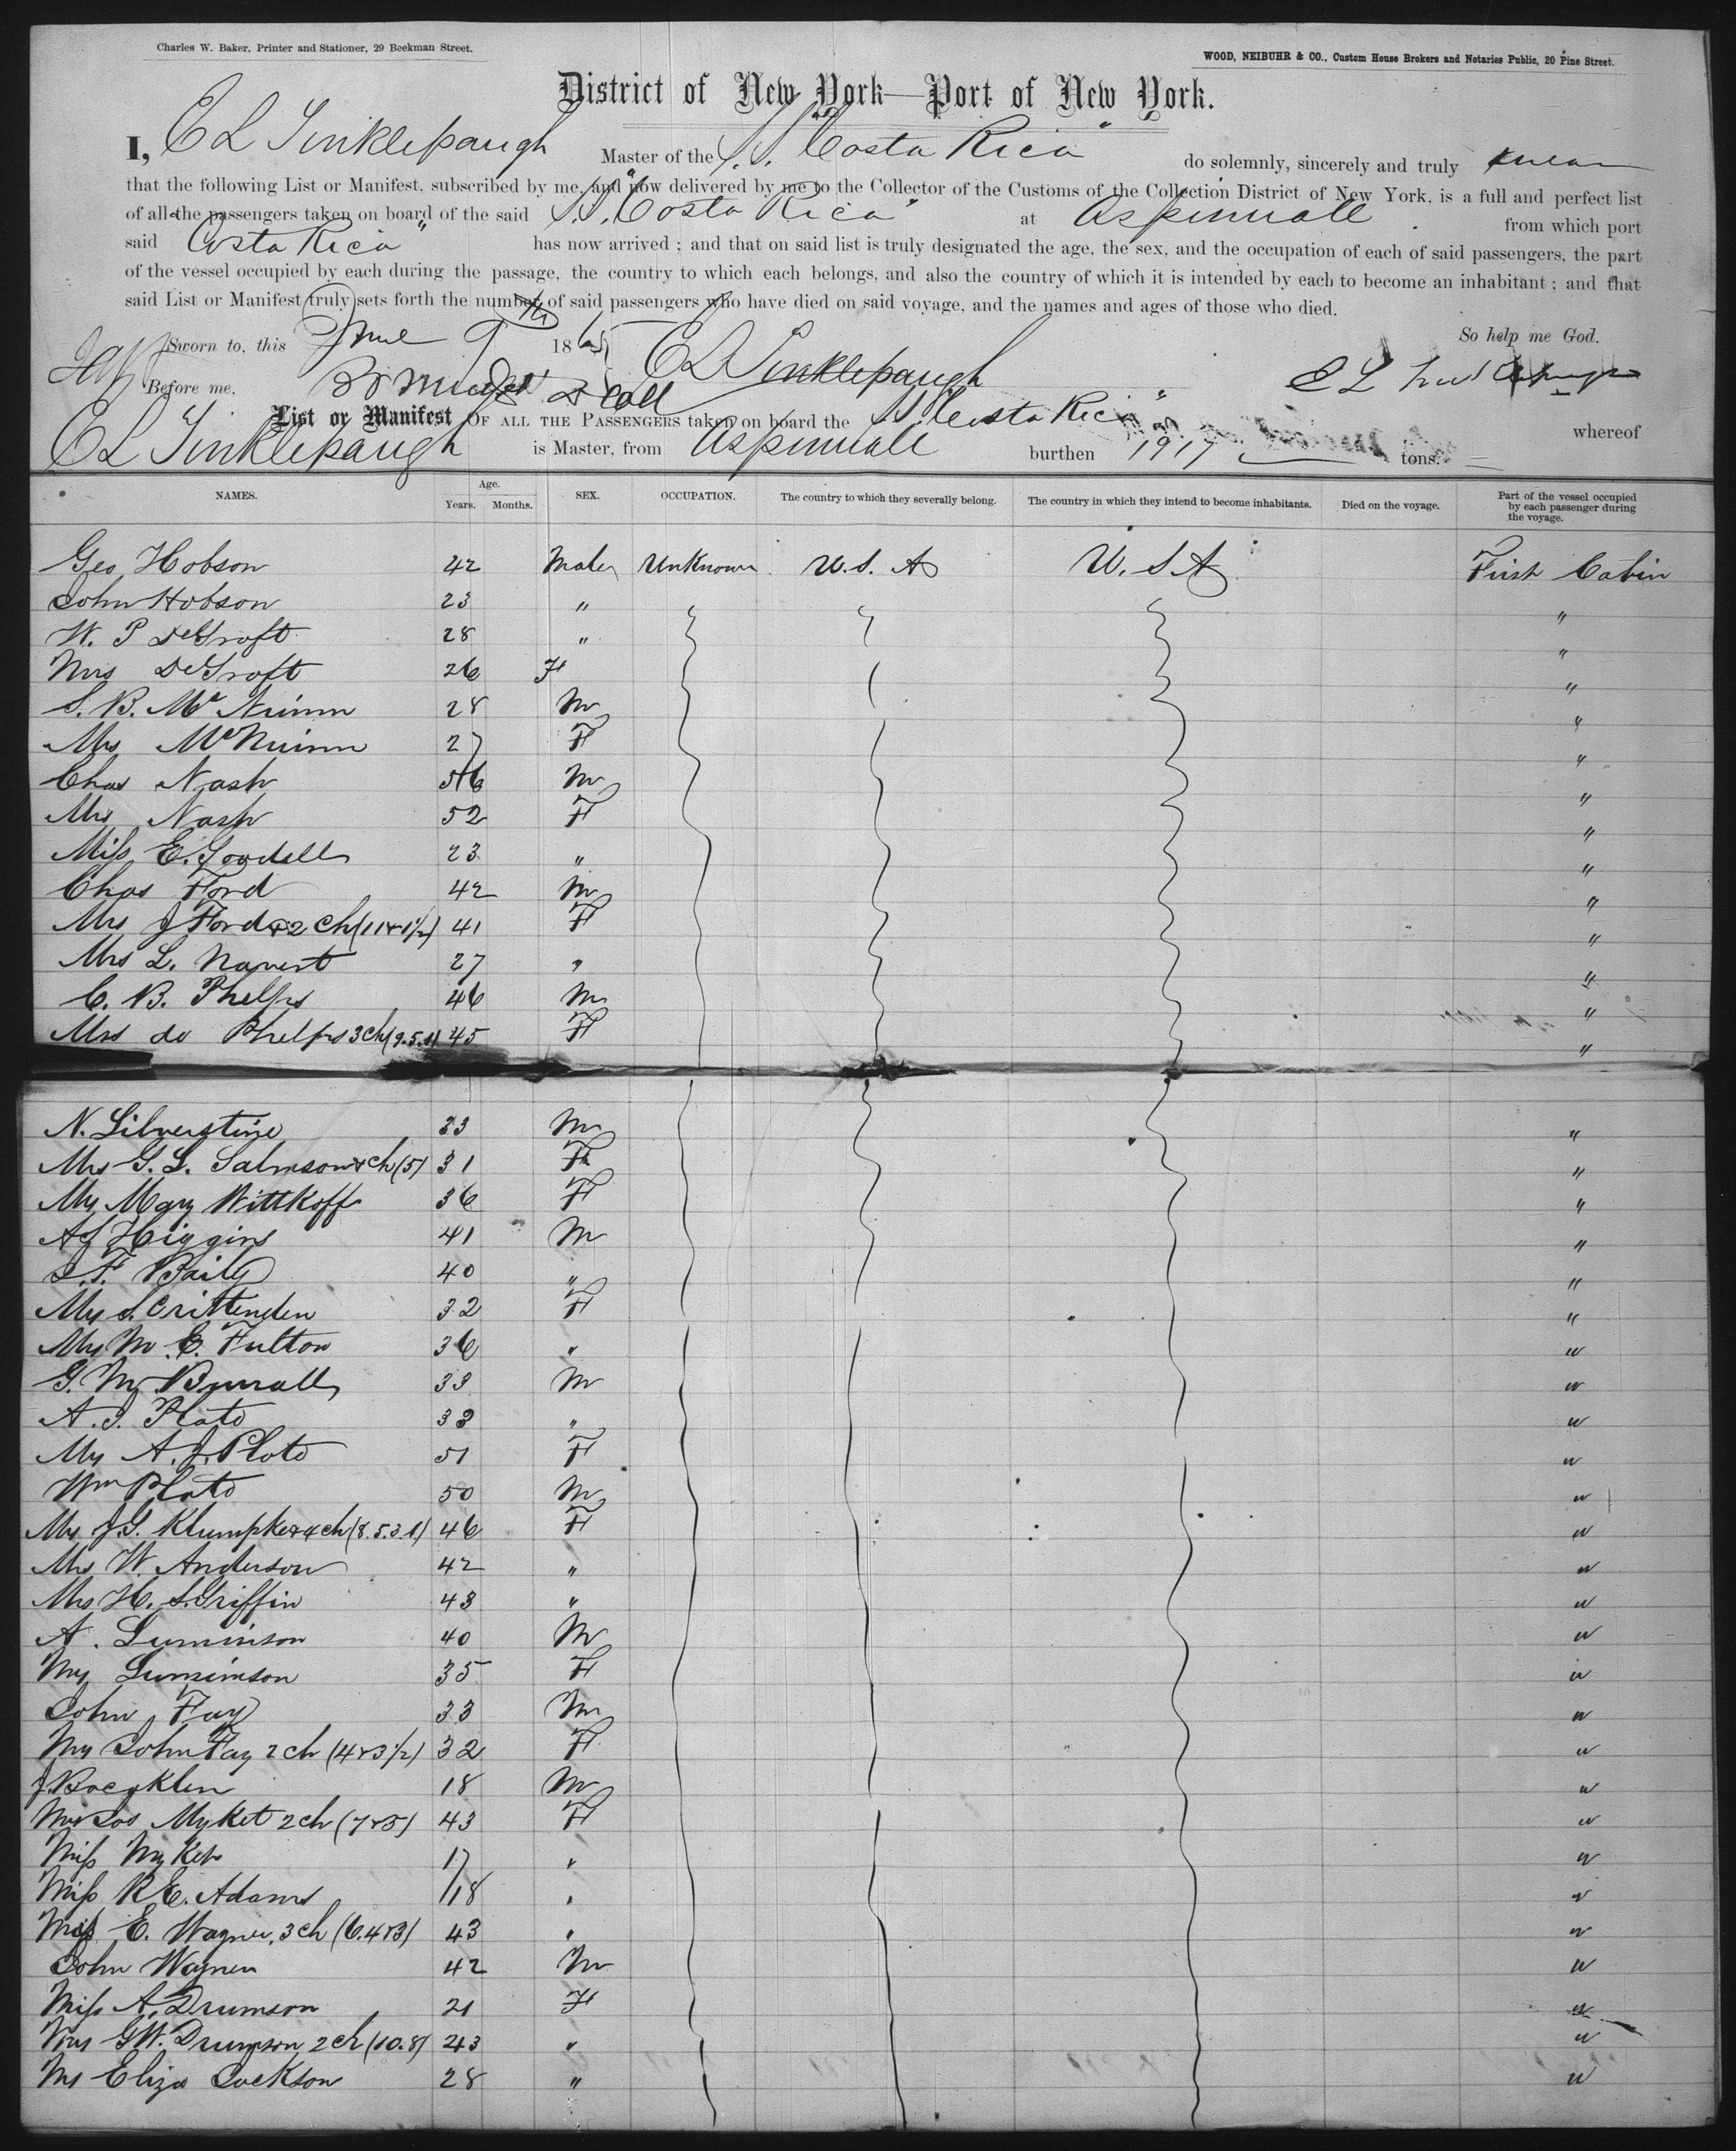 Charles W. Baker, Printer and Stationer, 29 Beekman Street.
WOOD, NEIBUHR & CO., Custom House Brokers and Notaries Public, 20 Pine Street.
District of New York—Port of New York.
I, E L Tinklepaugh Master of the S.S. "Costa Rica" do solemnly, sincerely and truly swear
that the following List or Manifest, subscribed by me, and now delivered by me to the Collector of the Customs of the Collection District of New York, is a full and perfect list
of all the passengers taken on board of the said S.S. "Costa Rica" at Aspinwall from which port
said "Costa Rica" has now arrived ; and that on said list is truly designated the age, the sex, and the occupation of each of said passengers, the part
of the vessel occupied by each during the passage, the country to which each belongs, and also the country of which it is intended by each to become an inhabitant ; and that
said List or Manifest truly sets forth the number of said passengers who have died on said voyage, and the names and ages of those who died.
So help me God.
Sworn to, this June 9th 1865 E L Tinklepaugh
Before me, D Coll E L Tinklepaugh
List or Manifest OF ALL THE PASSENGERS taken on board the S.S. "Costa Rica" whereof
E L Tinklepaugh is Master, from Aspinwall burthen 1917 tons.
NAMES. Age. Years. Months. SEX. OCCUPATION. The country to which they severally belong. The country in which they intend to become inhabitants. Died on the voyage. Part of the vessel occupied by each passenger during the voyage.
Geo Hobson 42 Male Unknown U.S. A U. S A First Cabin
John Hobson 23 " "
W. P DeGroft 28 " "
Mrs DeGroft 26 F "
S. B. Mc Nimm 28 M "
Mrs McNuimm 27 F "
Chas Nash 56 M "
Mrs Nash 52 F "
Miss E. Goodell 23 " "
Chas Ford 42 M "
Mrs J Ford & 2 ch (11 & 1½) 41 F "
Mrs L. Navest 27 " "
C. B. Phelps 46 M "
Mrs do Phelps 3 ch (9.5.1) 45 F "
N. Silverstine 33 M "
Mrs G. L. Salmson & ch (5) 31 F "
Mrs Mary Wittkoff 36 F "
A J Higgins 41 M "
S. F. Baily 40 " "
Mrs S. Crittenden 32 F "
Mrs M. C. Fulton 36 " "
G. M. Burrall 33 M "
A. J. Plato 33 " "
Mrs A. J. Plato 51 F "
Wm Plato 50 M "
Mrs J.G. Klumpke & 4 ch (8.5.3.1) 46 F "
Mrs W. Anderson 42 " "
Mrs H. S. Griffin 43 " "
A. Luminson 40 M "
Mrs Lumimson 35 F "
John Fay 33 M "
Mrs John Fay 2 ch (4 & 3½) 32 F "
J. Bocqklen 18 M "
Mrs Jos Myket 2 ch (7 & 5) 43 F "
Miss Myket 17 " "
Miss R E. Adams 18 " "
Miss E. Wagner, 3 ch (6.4 & 3) 43 " "
John Wagner 42 M "
Miss A. Drumson 21 F "
Mrs G W. Drumson 2 ch (10.8) 43 " "
Mrs Eliza Jackson 28 " "